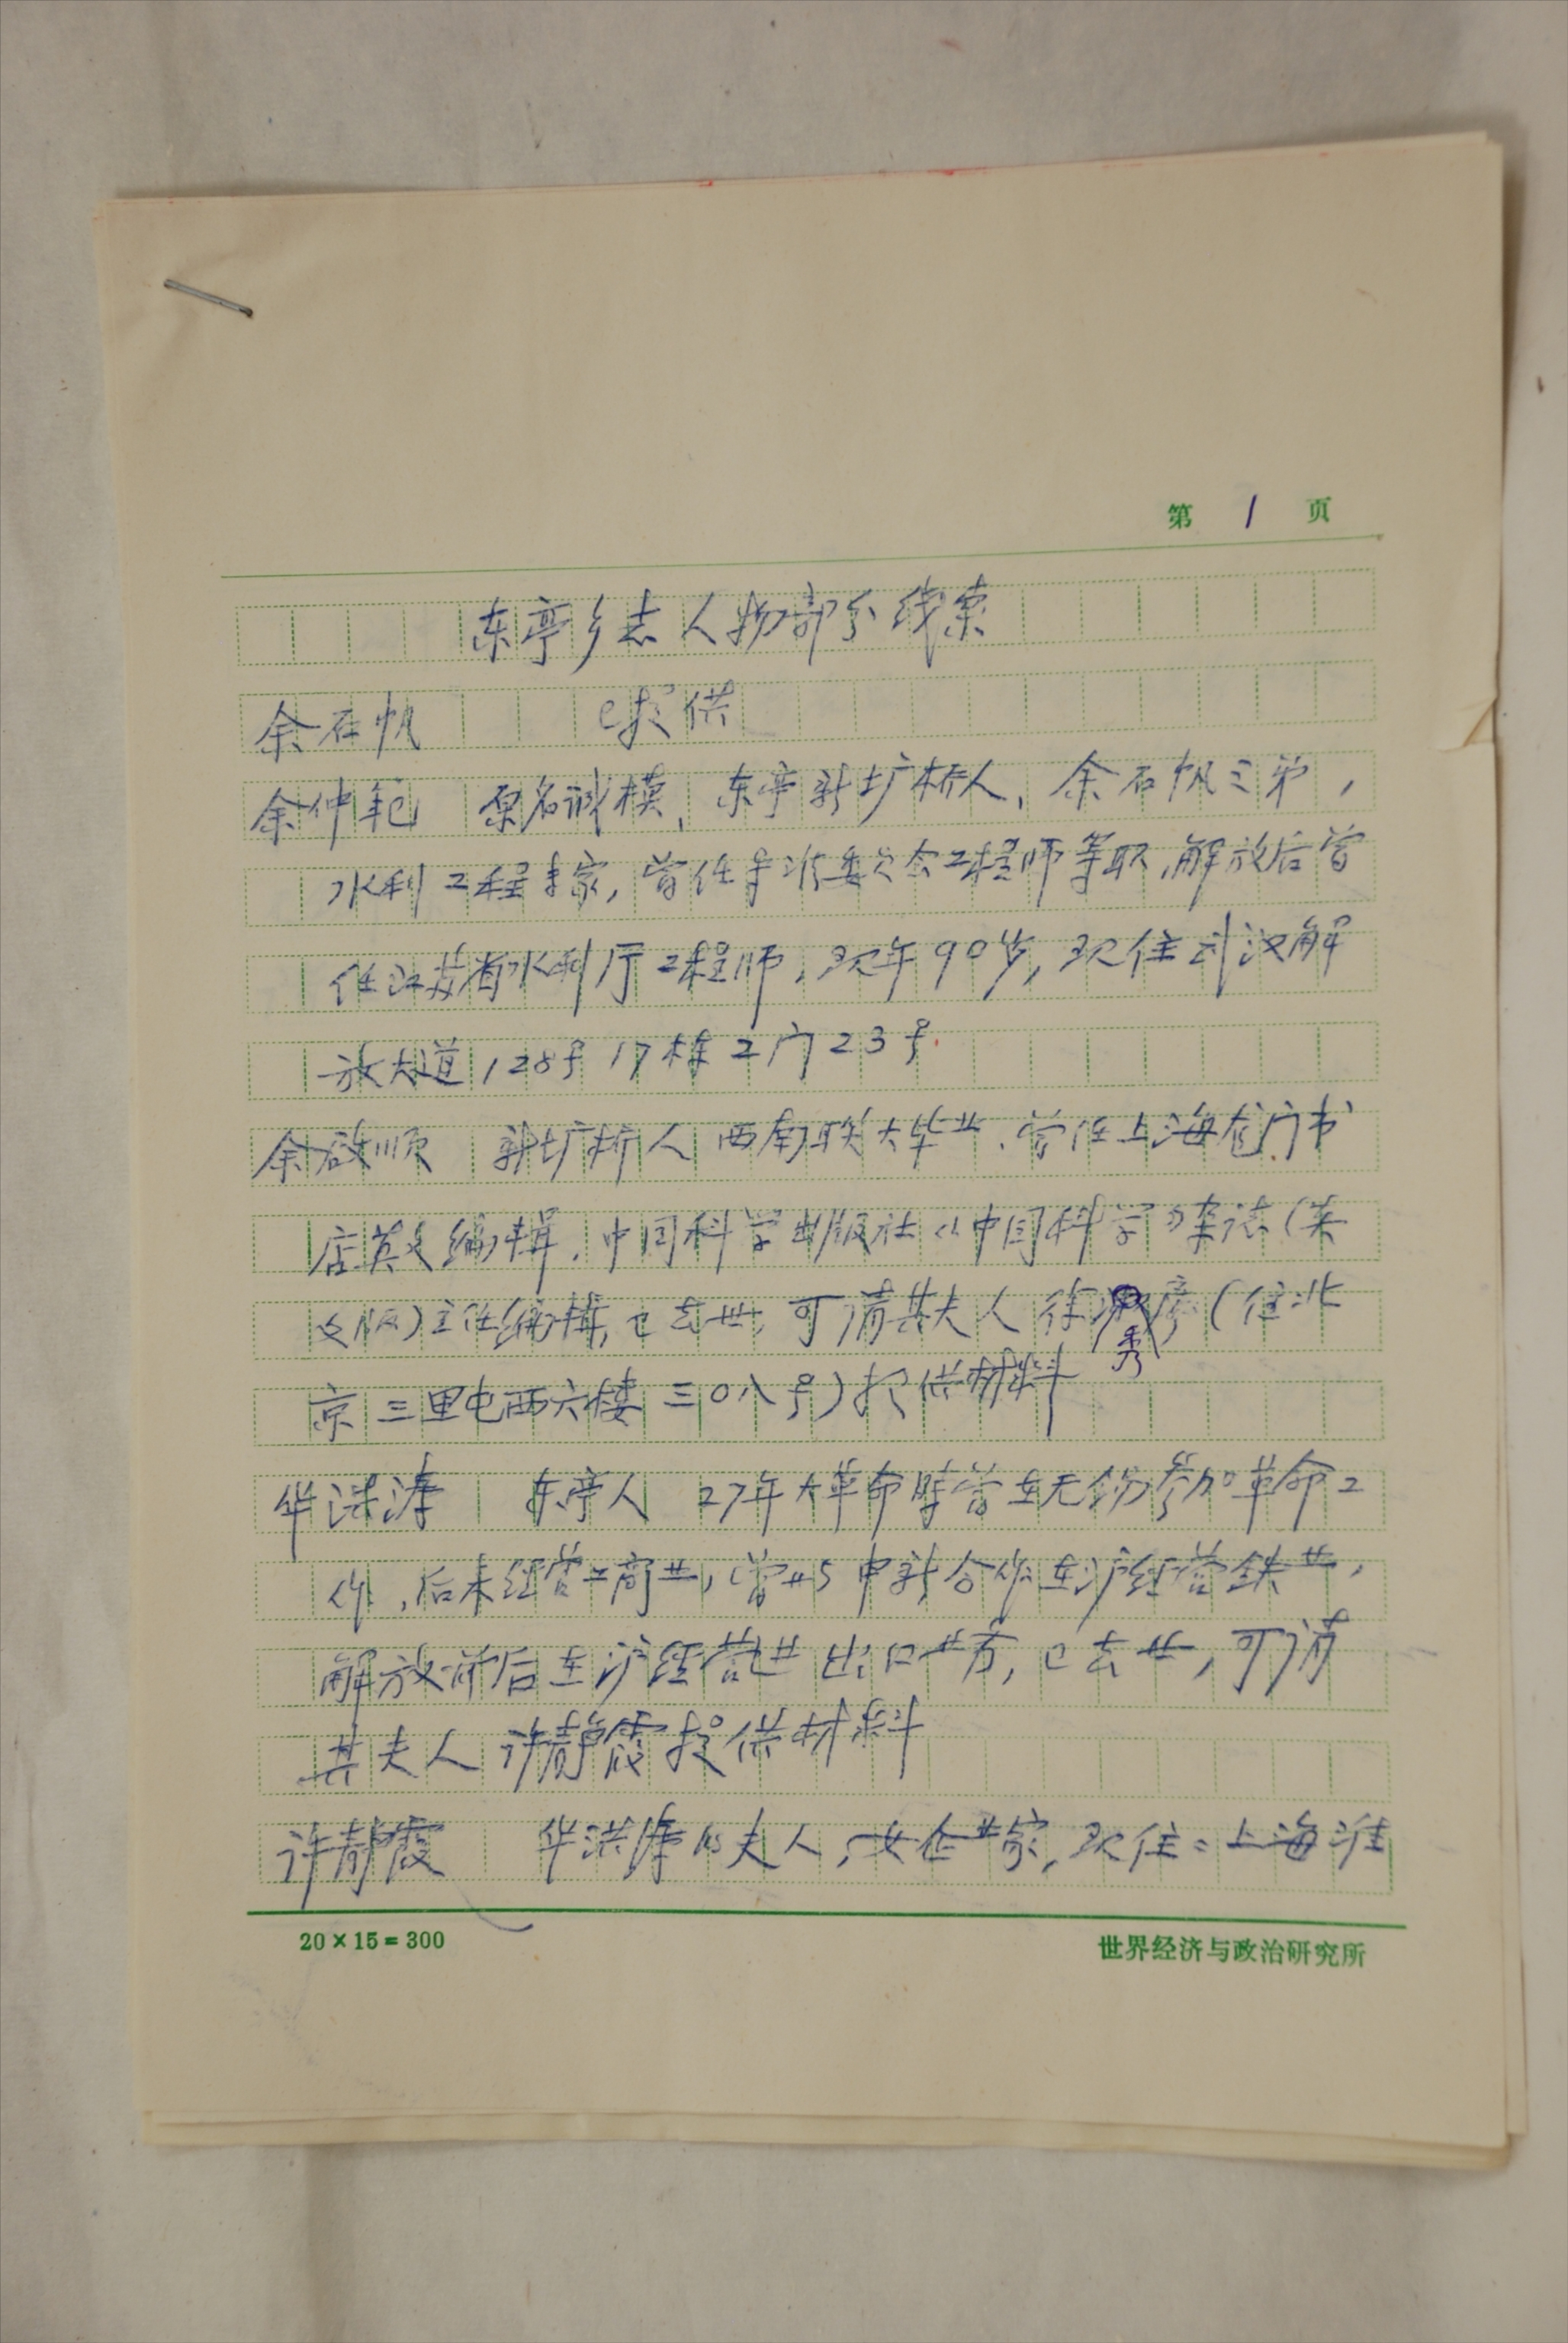 第 1 页
东亭乡志人物部分线索
余石帆 已提供
余仲范 原名诚模、东亭新圹桥人、余石帆三弟，
水利工程专家，曾任导淮委员会工程师等职，解放后曾
任江苏省水利厅工程师，现年90岁，现住武汉解
放大道128号17栋2门23号.
余啟顺 新圹桥人 西南联大毕业.曾任上海龙门书
店英文编辑.中国科学出版社《中国科学》杂志（英
文版）主任编辑，已去世，可请其夫人徐秀（住北
京三里屯西六楼三〇八号）提供材料
华洪涛 东亭人 27年大革命时曾在无锡参加革命工
作，后来经营工商业，曾与中新合作在沪经营铁业，
解放前后在沪经营进出口业务，已去世，可请
其夫人许静霞提供材料
许静霞 华洪涛的夫人，女企业家，现住：上海淮
20×15=300
世界经济与政治研究所